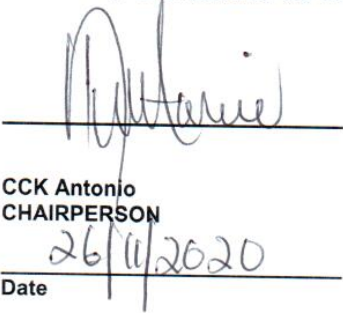 CCK Antonio
CHAIRPERSON
26/11/2020
Date